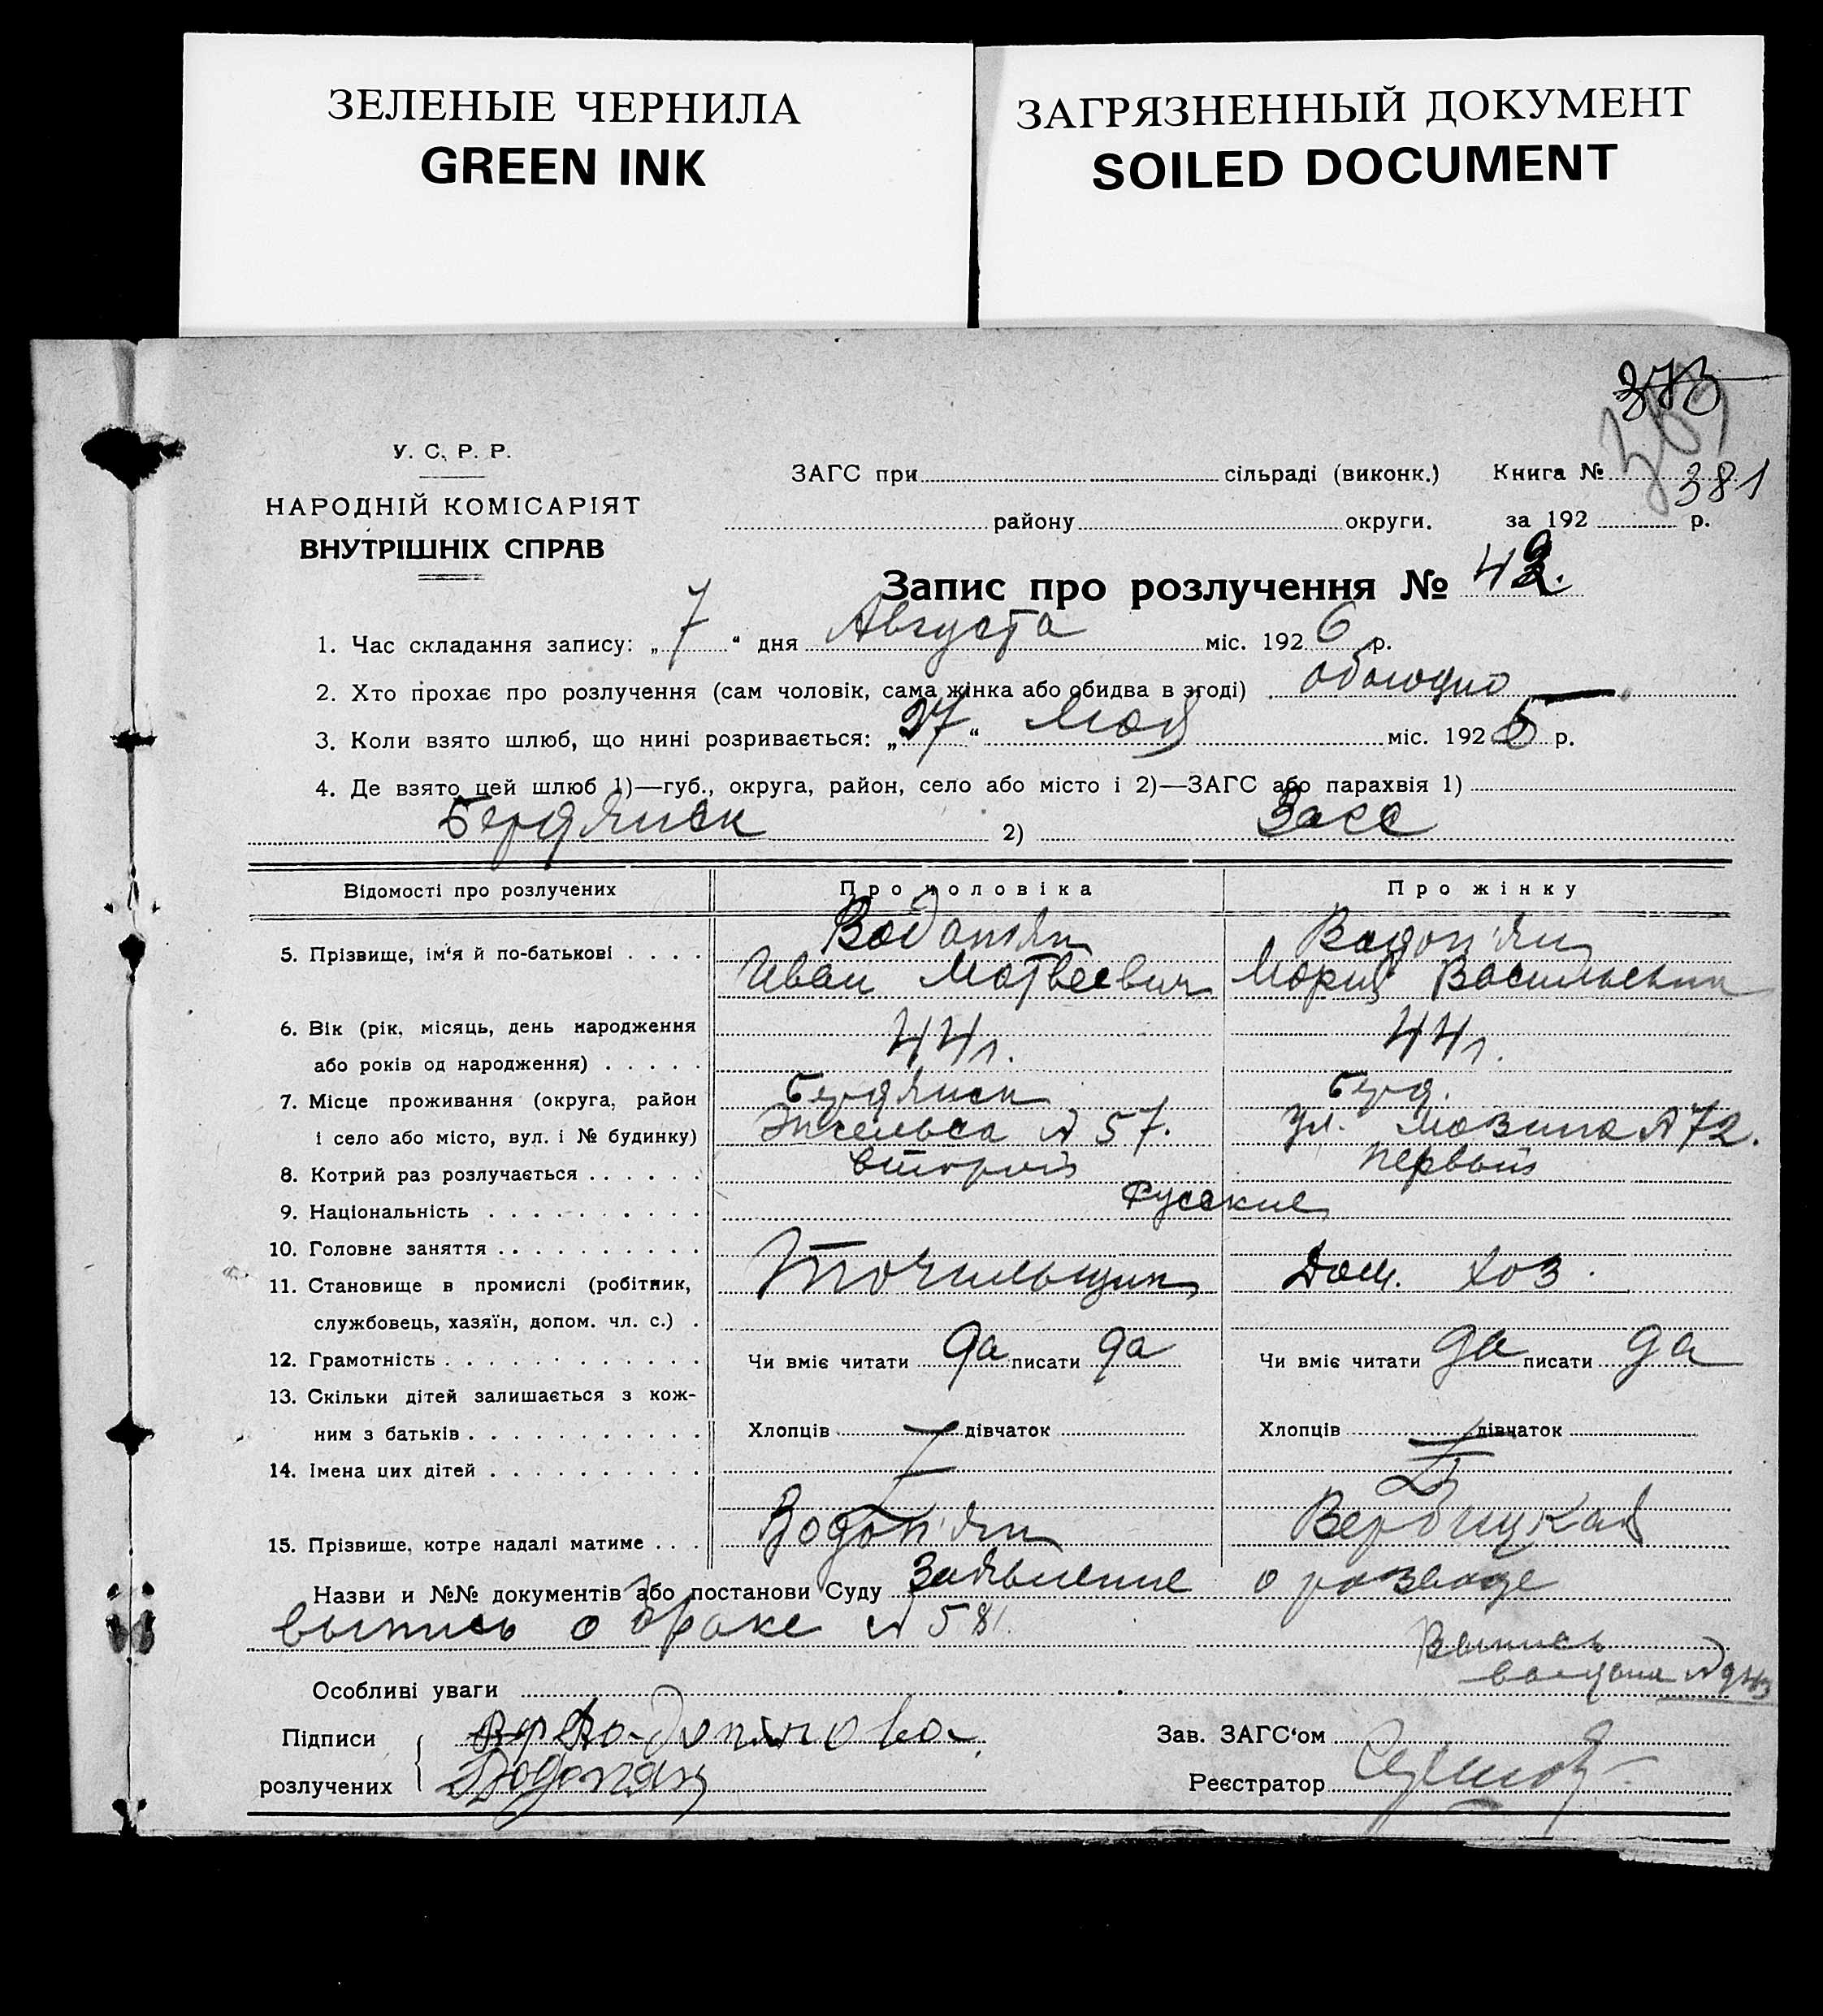 ЗЕЛЕНЫЕ ЧЕРНИЛА
GREEN INK
ЗАГРЯЗНЕННЫЙ ДОКУМЕНТ
SOILED DOCUMENT
373
381
У. С. Р. Р.
НАРОДНІЙ КОМІСАРІЯТ
ВНУТРІШНІХ СПРАВ
ЗАГС при сільраді (виконк.) Книга №
району округи. за 192 р.
Запис про розлучення № 42.
1. Час складання запису: „7“ дня Августа міс. 1926 р.
2. Хто прохає про розлучення (сам чоловік, сама жінка або обидва в згоді) обоюдно
3. Коли взято шлюб, що нині розривається: „27“ Мая міс. 1925 р.
4. Де взято цей шлюб 1)—губ., округа, район, село або місто і 2)—ЗАГС або парахвія 1)
Бердянск 2) Загс
Відомості про розлучених Про чоловіка Про жінку
5. Прізвище, ім'я й по-батькові Водопьян Водоп'ян
Иван Матвеевич Мария Васильевна
6. Вік (рік, місяць, день народження
або років од народження) 44 л. 44 л.
7. Місце проживання (округа, район Бердянск Берд.
і село або місто, вул. і № будинку) Энгельса № 57. ул. Мазина № 72.
8. Котрий раз розлучається второй первый
9. Національність Русские
10. Головне заняття
11. Становище в промислі (робітник, Точильщик Дом. хоз.
службовець, хазяїн, допом. чл. с.)
12. Грамотність Чи вміє читати да писати да Чи вміє читати да писати да
13. Скільки дітей залишається з кож-
ним з батьків Хлопців дівчаток Хлопців дівчаток
14. Імена цих дітей
15. Прізвише, котре надалі матиме Водоп'ян Вербицкая
Назви и №№ документів або постанови Суду Заявление о разводе
выпись о браке № 581.
Выпись
выдана №
Особливі уваги
Підписи
розлучених Водопян
Зав. ЗАГС'ом
Реєстратор